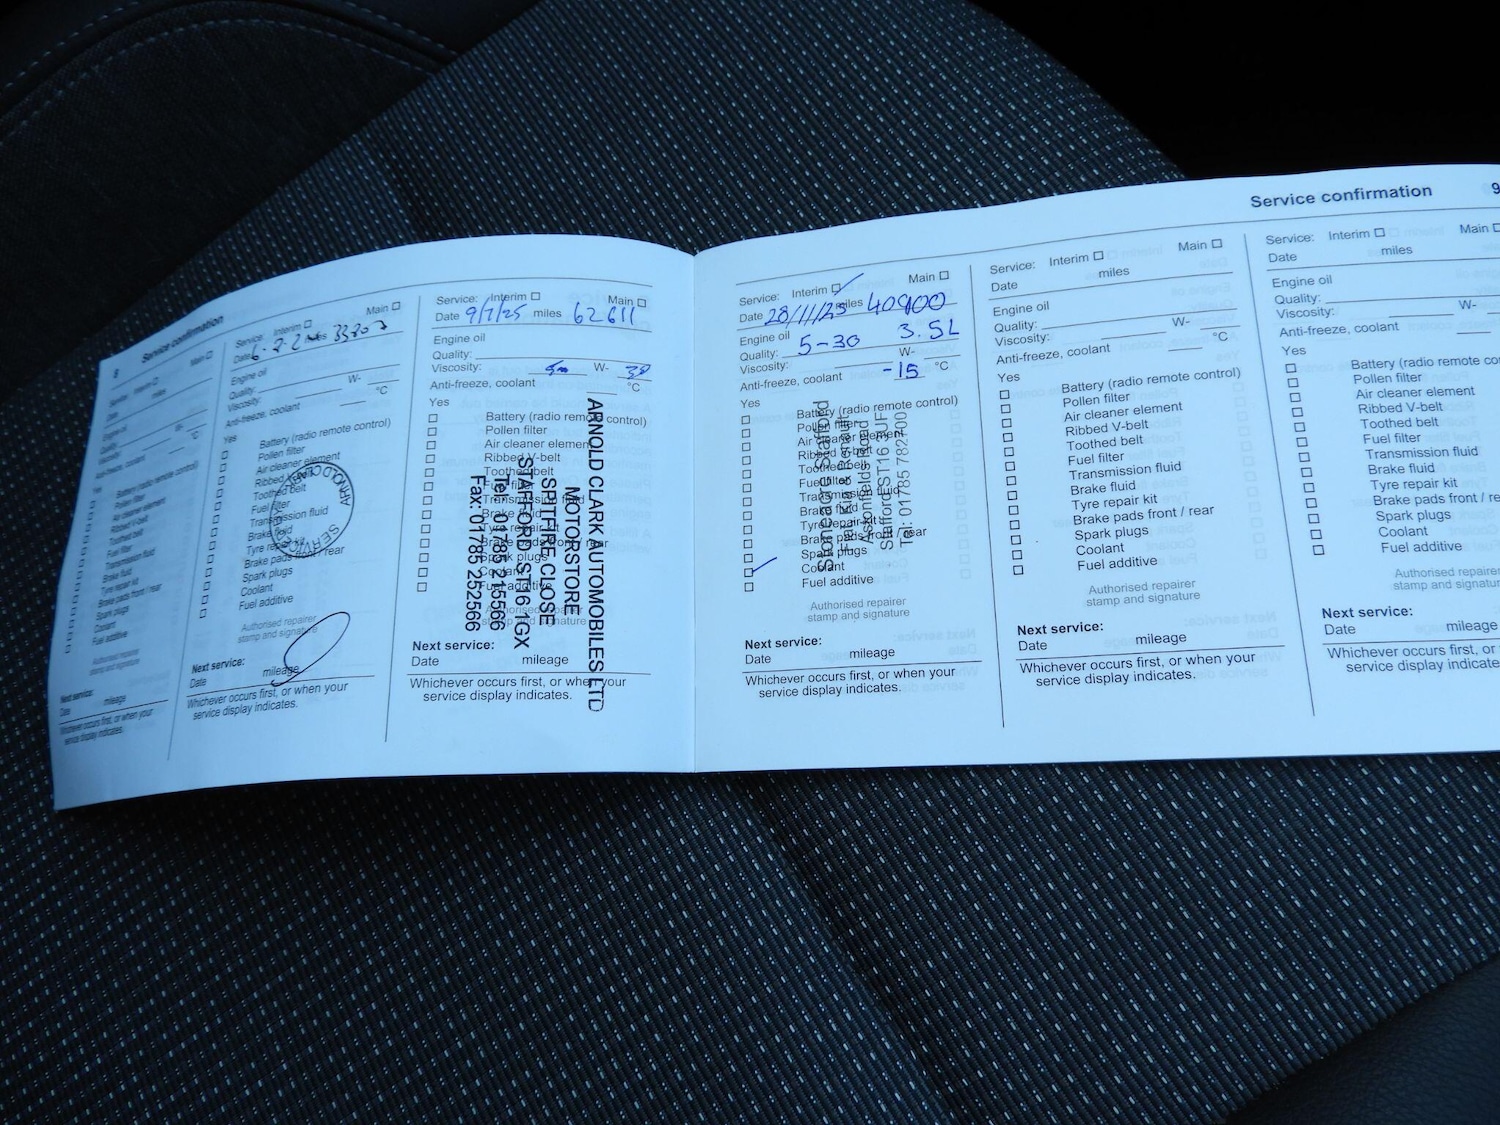 8 Service confirmation
Main
miles
Battery (radio remote control)
Pollen filter
Air cleaner element
Ribbed V-belt
Toothed belt
Fuel filter
Transmission fluid
Brake fluid
Tyre repair kit
Brake pads front / rear
Spark plugs
Coolant
Fuel additive
Authorised repairer
stamp and signature
Next service:
Date mileage
Whichever occurs first, or when your
service display indicates.
Service: Interim Main
Date
Engine oil
Quality:
Viscosity: W-
Anti-freeze, coolant °C
Yes
Battery (radio remote control)
Pollen filter
Air cleaner element
Ribbed
Toothed belt
Fuel filter
Transmission fluid
Brake fluid
Tyre repair kit
Brake pads front / rear
Spark plugs
Coolant
Fuel additive
ARNOLD CLARK
SERVICE
Authorised repairer
stamp and signature
Next service:
Date mileage
Whichever occurs first, or when your
service display indicates.
Service: Interim Main
Date 9/7/25 miles 62611
Engine oil
Quality:
Viscosity: W- 30
Anti-freeze, coolant °C
Yes
Battery (radio remote control)
Pollen filter
Air cleaner element
Ribbed V-belt
Toothed belt
Fuel filter
Transmission fluid
Brake fluid
Tyre repair kit
Brake pads front / rear
Spark plugs
Coolant
Fuel additive
Authorised repairer
stamp and signature
ARNOLD CLARK AUTOMOBILES LTD
MOTORSTORE
SPITFIRE CLOSE
STAFFORD ST16 1GX
Tel: 01785 216566
Fax: 01785 252566
Next service:
Date mileage
Whichever occurs first, or when your
service display indicates.
Service: Interim Main
Date 28/11/23 miles 40900
Engine oil 5-30 3.5L
Quality: W-
Viscosity:
Anti-freeze, coolant -15 °C
Yes
Battery (radio remote control)
Pollen filter
Air cleaner element
Ribbed V-belt
Toothed belt
Fuel filter
Transmission fluid
Brake fluid
Tyre repair kit
Brake pads front / rear
Spark plugs
Coolant
Fuel additive
Stafford
Road
Stafford ST16 3UF
Tel: 01785 782700
Authorised repairer
stamp and signature
Next service:
Date mileage
Whichever occurs first, or when your
service display indicates.
Service confirmation 9
Service: Interim Main
Date miles
Engine oil
Quality: W-
Viscosity:
Anti-freeze, coolant °C
Yes
Battery (radio remote control)
Pollen filter
Air cleaner element
Ribbed V-belt
Toothed belt
Fuel filter
Transmission fluid
Brake fluid
Tyre repair kit
Brake pads front / rear
Spark plugs
Coolant
Fuel additive
Authorised repairer
stamp and signature
Next service:
Date mileage
Whichever occurs first, or when your
service display indicates.
Service: Interim Main
Date miles
Engine oil
Quality: W-
Viscosity:
Anti-freeze, coolant
Yes
Battery (radio remote co
Pollen filter
Air cleaner element
Ribbed V-belt
Toothed belt
Fuel filter
Transmission fluid
Brake fluid
Tyre repair kit
Brake pads front / re
Spark plugs
Coolant
Fuel additive
Authorised repairer
stamp and signature
Next service:
Date mileage
Whichever occurs first, or
service display indicate